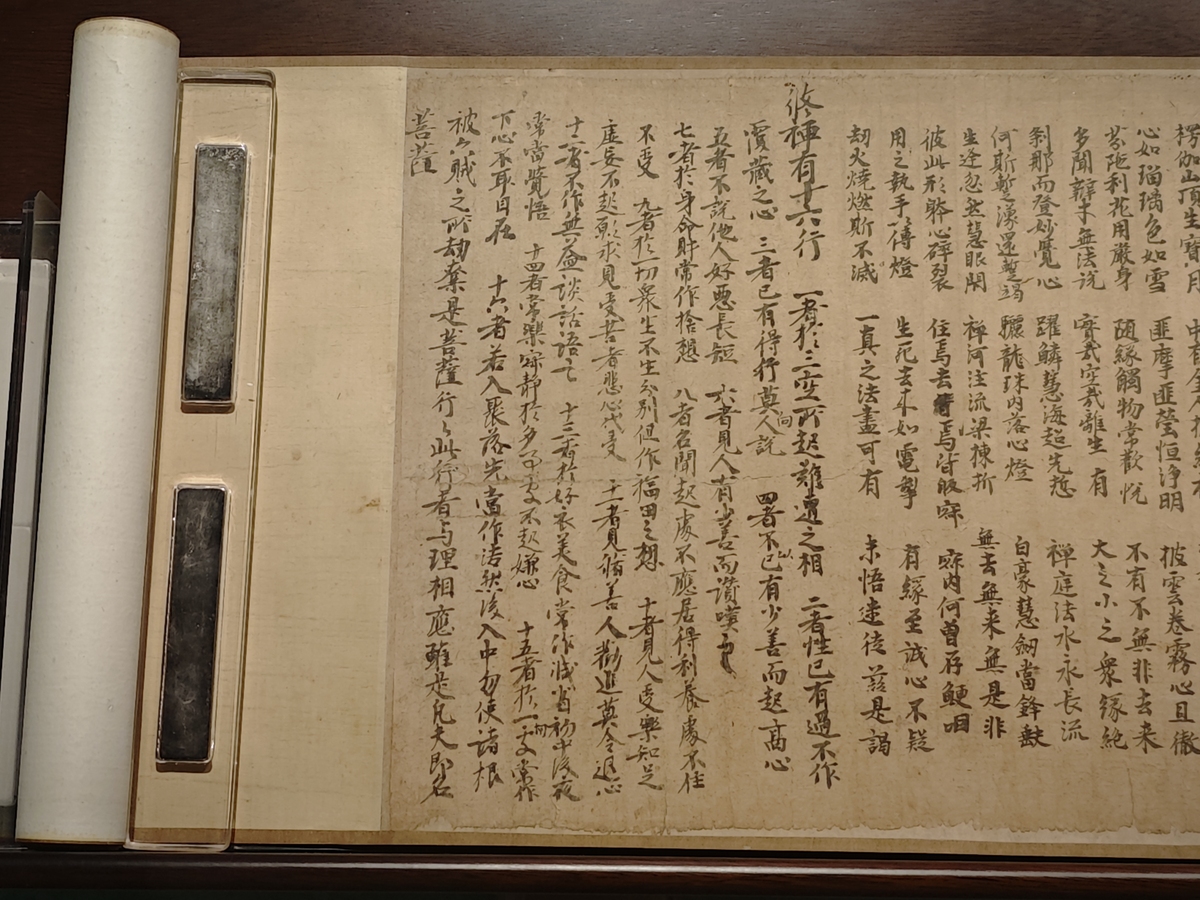 楞伽山頂生寶月
心如瑠璃色如雪　匪摩匪瑩恒淨明　披雲卷霧心且徹
芬陁利花用嚴身　隨緣觸物常歡悅　不有不無非去来
多聞辯才無法說　實哉空哉離生有　大之小之衆緣絶
剎那而登妙覺心　躍鱗慧海超先悊　禪庭法水永長流
何斯暫湧還暫竭　驪龍珠内落心燈　白豪慧劒當鋒缺
生途忽然慧眼閇　禪河注流梁棟折　無去無来無是非
彼此形骸心碎裂　住焉去焉皆歸寂　寂内何曾存鯁咽
用之執手傳燈　生死去来如電掣　有緣至誠心不疑
劫火燒燃斯不滅　一真之法盡可有　未悟迷徒茲是謁
修禪有十六行　一者於三空所起難遣之相　二者性已有過不作
覆藏之心　三者已有得行莫向人說　四者不以已有少善而起高心
五者不說他人好惡長短　六者見人有少善而讚嘆之
七者於身命財常作捨想　八者名聞起處不應居得利養處不住
不受　九者於一切衆生不生分別但作福田之想　十者見人受樂知足
虛妄不起願求見受苦者悲心代受　十一者見脩善人勸進莫令退心
十二者不作無益談話語言　十三者於好衣美食常作減省初中後夜
常當覺悟　十四者常樂寂靜於多事處不起嫌心　十五者於一切處常作
下心不取自在　十六者若入聚落先當作法然後入中勿使諸根
被六賊之所劫奪是菩薩行々此行者与理相應雖是凡夫即名
菩薩